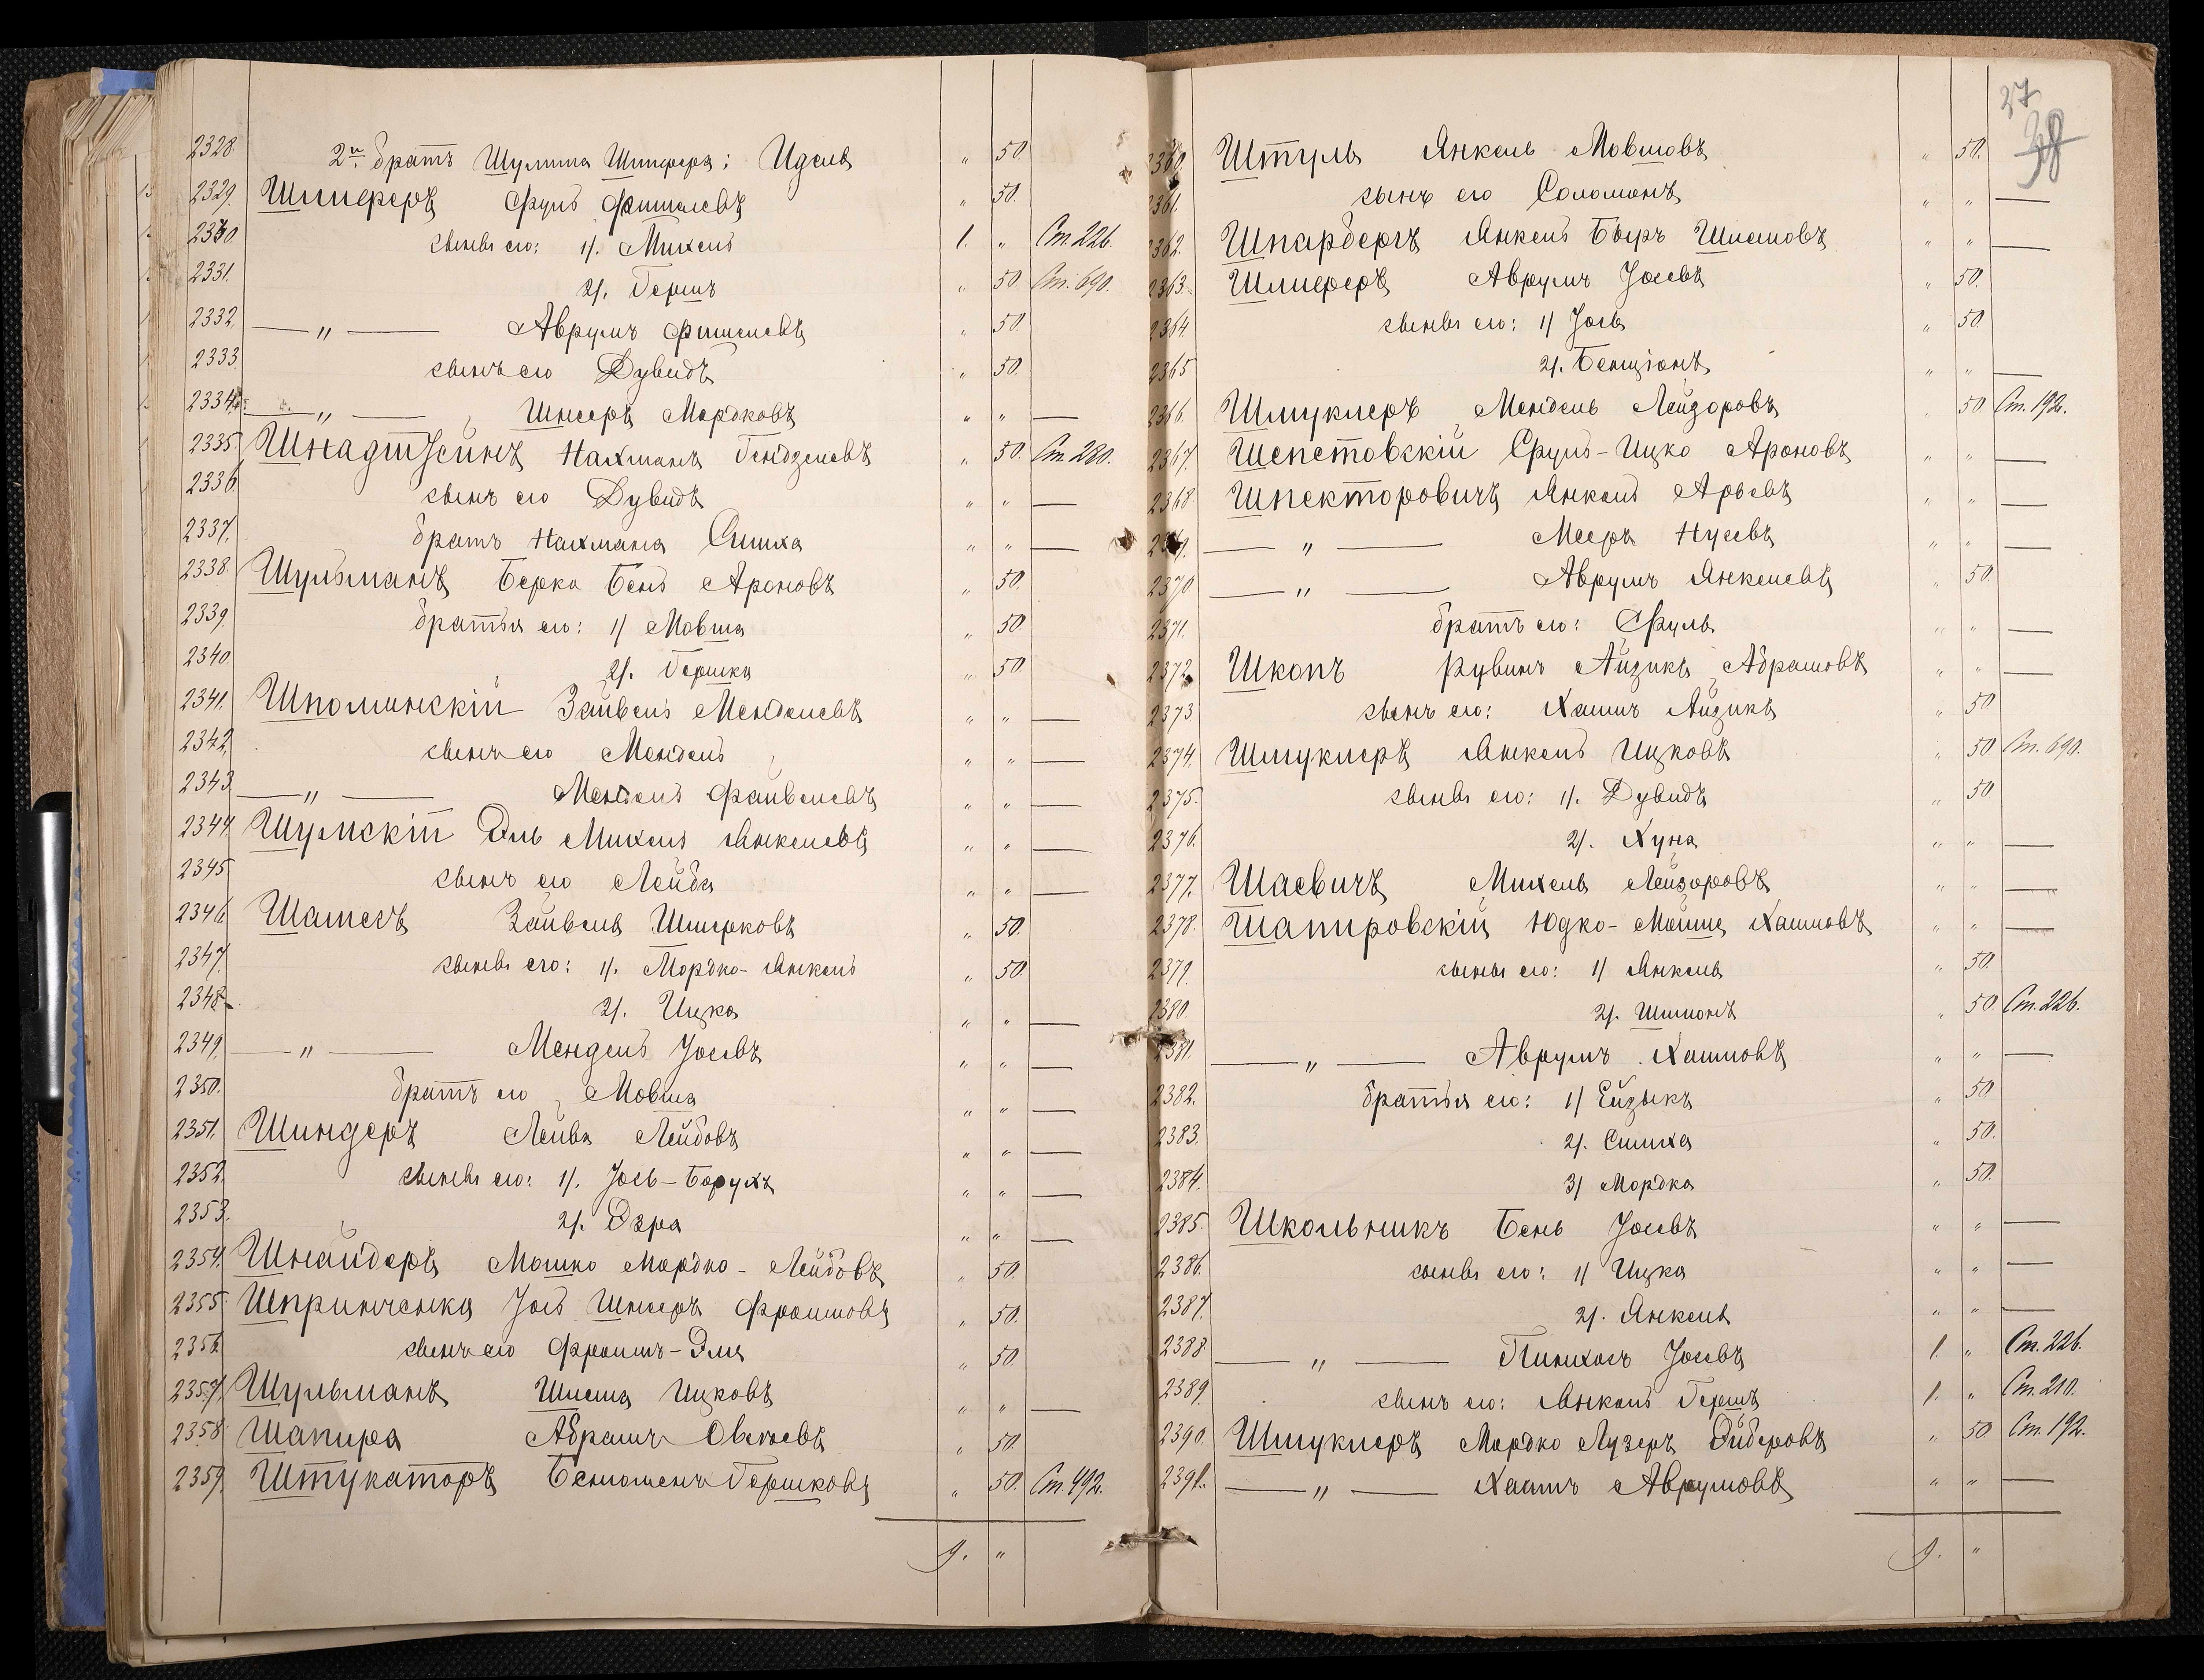 2328 2й братъ Шулима Шмерера: Идель " 50.
2329. Шмереръ Сруль Фишелевъ " 50.
2330 сыновья его: 1/. Михель 1. " Ст. 226.
2331. 2/. Гершъ " 50 Ст. 690.
2332. —"— Аврумъ Фишелевъ " 50
2333. сынъ его Дувидъ " 50.
2334. —"— Шнееръ Мордковъ " " —
2335. Шнадштейнъ Нахманъ Гендзелевъ " 50. Ст. 280.
2336. сынъ его Дувидъ " " —
2337. братъ Нахмана Симха " " —
2338. Шульманъ Берко Бень Ароновъ " 50.
2339. братья его: 1/ Мовша " 50
2340 2/. Гершко " 50
2341. Шполянскій Зайвель Менделевъ " " —
2342. сынъ его Мендель " " —
2343. —"— Мендель Файвелевъ " " —
2344 Шумскій Эль Михель Янкелевъ " " —
2345 сынъ его Лейба " " —
2346. Шамесъ Зайвель Шмерковъ " 50.
2347. сыновья его: 1/. Мордко-Янкель " 50
2348. 2/. Ицко " " —
2349. —"— Мендель Іосевъ " " —
2350. братъ его Мовша " " —
2351. Шиндеръ Лейба Лейбовъ " " —
2352. сыновья его: 1/. Іось-Борухъ " " —
2353. 2/. Эзра " " —
2354. Шнайдеръ Мошко Мордко-Лейбовъ " 50.
2355. Шпринченко Іось Шнееръ Фроимовъ " 50.
2356. сынъ его Фроимъ-Эля " 50
2357. Шульманъ Шлема Ицковъ " " —
2358 Шапира Абрамъ Овсеевъ " 50.
2359. Штукаторъ Беньоменъ Гершковъ " 50. Ст. 492.
9. "
37
38
2360. Штуль Янкель Мовшовъ " 50.
2361. сынъ его Соломонъ " " —
2362. Шпарбергъ Янкель Беръ Шлемовъ " " —
2363. Шмереръ Аврумъ Іосевъ " 50.
2364 сыновья его: 1/ Іось " 50
2365 2/. Бенціонъ " " —
2366. Шмуклеръ Мендель Лейзоровъ " 50 Ст. 192.
2367. Шепетовскій Сруль-Ицко Ароновъ " " —
2368. Шпекторовичъ Янкель Арьевъ " " —
2369. —"— Мееръ Нусевъ " " —
2370 —"— Аврумъ Янкелевъ " 50.
2371. братъ его: Сруль " " —
2372. Шкопъ Рувинъ Айзикъ Абрамовъ " " —
2373 сынъ его: Хаимъ Айзикъ " 50
2374. Шмуклеръ Янкель Ицковъ " 50 Ст. 690.
2375. сыновья его: 1/. Дувидъ " 50
2376. 2/. Хуна " " —
2377. Шаевичъ Михель Лейзоровъ " " —
2378. Шапировскій Юдко-Мойше Хаимовъ " " —
2379. сыновья его: 1/ Янкель " 50.
2380 2/. Шимонъ " 50 Ст. 226.
2381. —"— Аврумъ Хаимовъ " " —
2382. братья его: 1/ Ейзыкъ " 50
2383. 2/. Симха " 50.
2384. 3/ Мордко " 50.
2385. Школьникъ Бень Іосевъ " " —
2386. сыновья его: 1/ Ицко " " —
2387. 2/. Янкель " " —
2388 —"— Пинхосъ Іосевъ 1. " Ст. 226.
2389. сынъ его: Янкель Гершъ 1. " Ст. 210.
2390. Шмуклеръ Мордко Лузеръ Эйберовъ " 50 Ст. 192.
2391. —"— Хаимъ Аврумовъ " " —
9. "